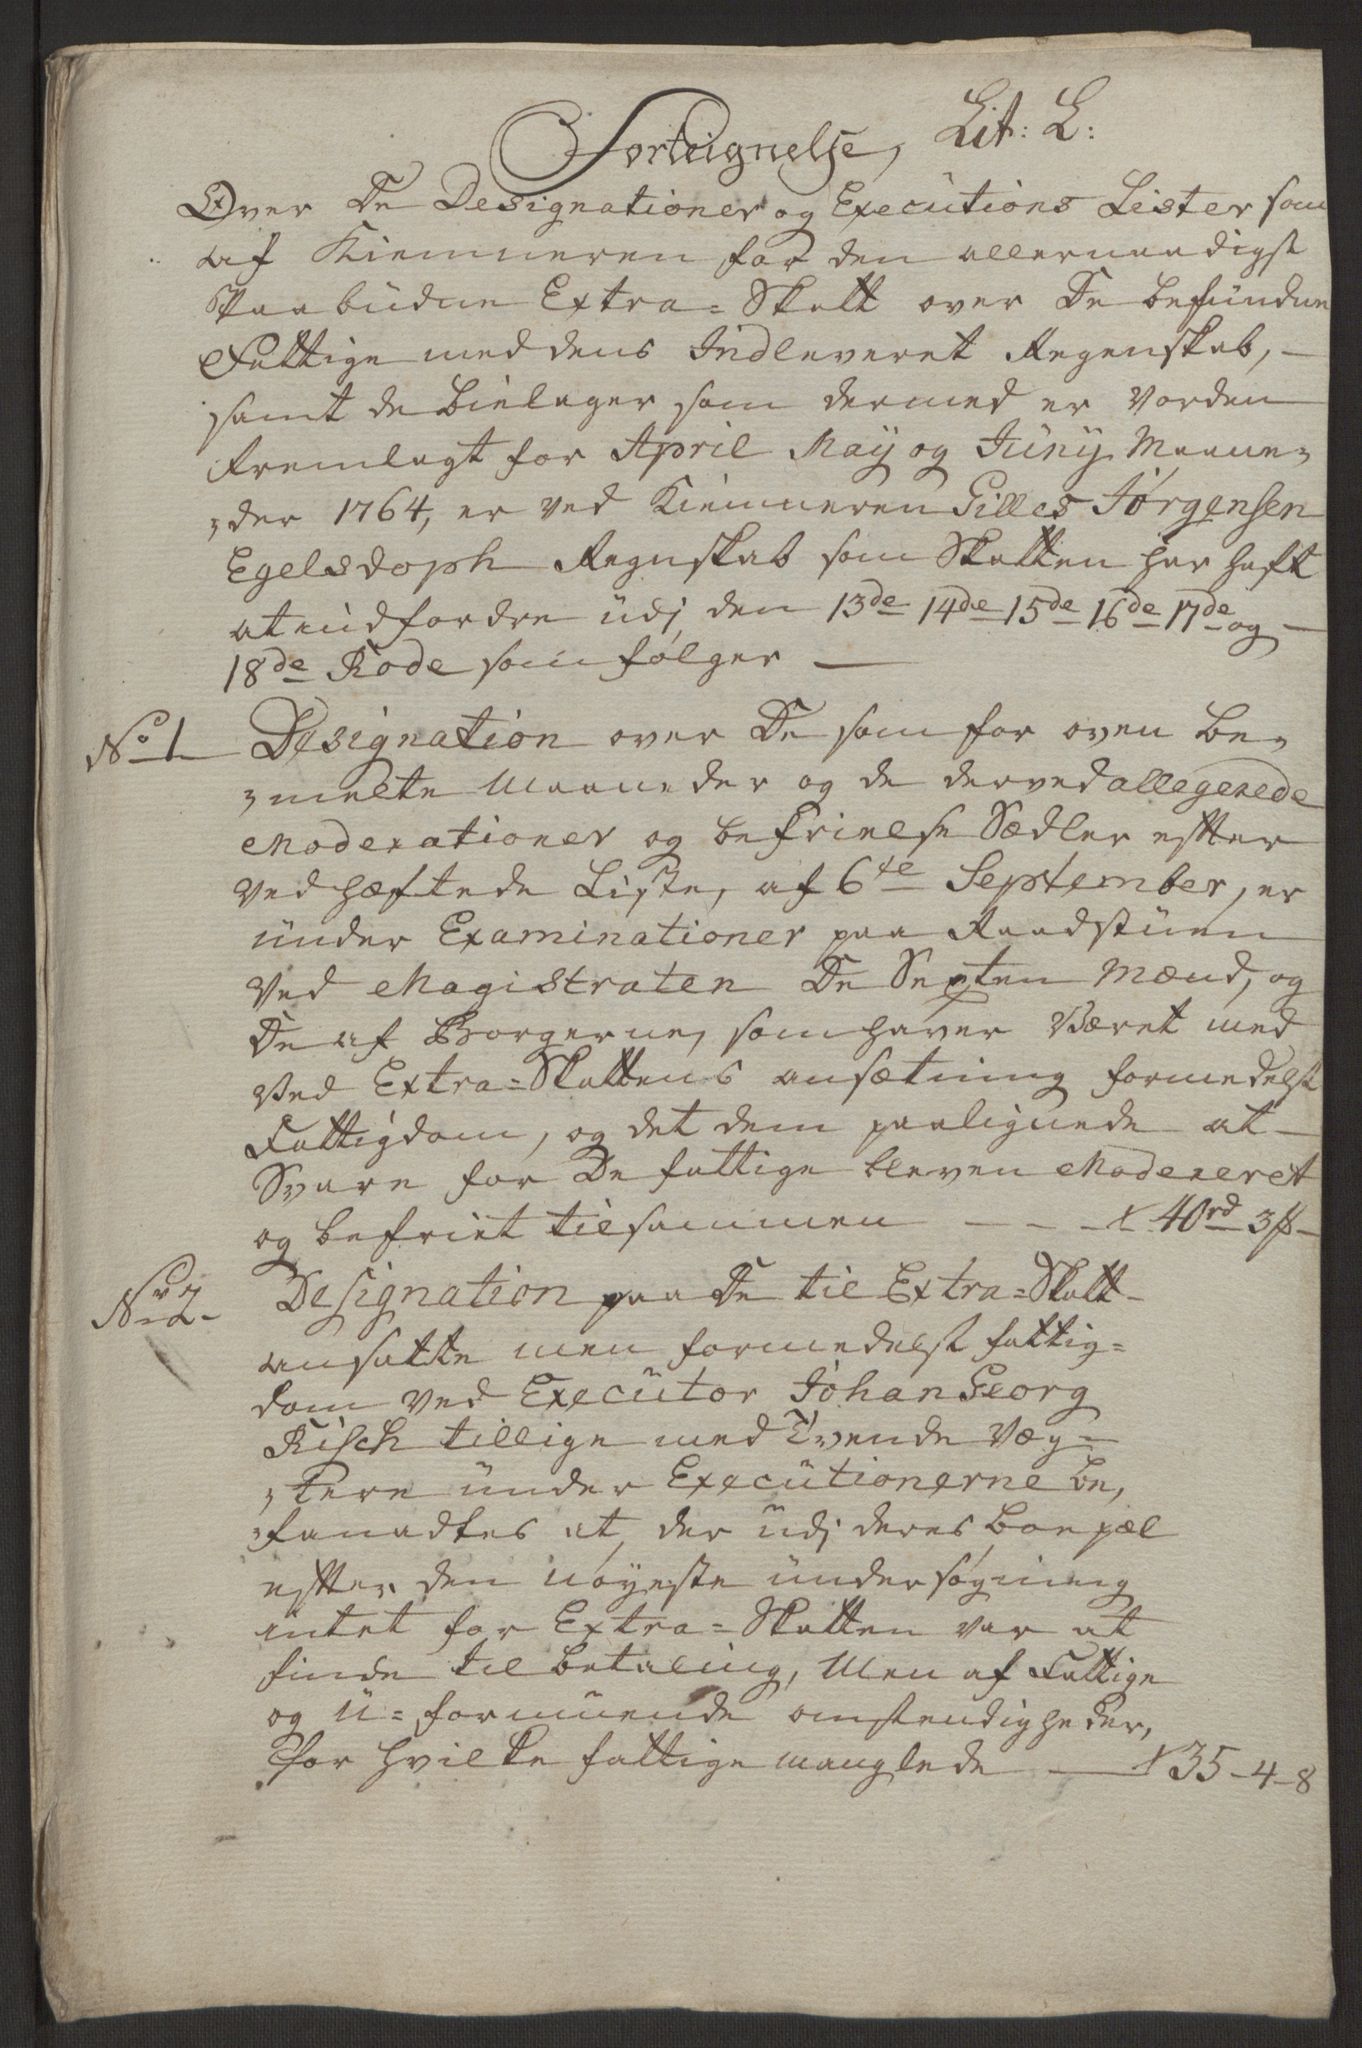 Forteignelse, Lit: L:
Over De Designationer og Executions Lister som
af Kiemneren for den allernaadigst
Paabüdne Extra=Skatt over De befündne
Fattige med dens Indleveret Regenskab,
samt de bielager som dermed er vorden
fremlagt for April Maÿ og Junÿ Maane„
„der 1764, er ved Kiemneren Gilles Jørgensen
Egelsdoph Regnskab som Skatten har haft
at indfordre üdj den 13de 14de 15de 16de 17de og
18de Rode som følger
No 1 Designation over De som for oven be„
„melte Maaneder og de derved allegerede
Moderationer og befrielse Sædler efter
ved hæftede Liste, af 6te September, er
ünder Examinationer paa Raadstüen
ved Magistraten De Sexten Mænd, og
De af Borgerne, som haver Været med
ved Extra=Skattens ansætning formedelst
Fattigdom, og det dem paalignede at
Svare for De fattige bleven Modereret
og befriet tilsammen 40rd 3ß
Nr 2 Designation paa De til Extra=Skatt
ansatte men formedelst fattig=
dom ved Executor Johan Georg
Risch tillige med Tvende Væg=
„tere ünder Executionerne be,
„fandtes at der üdj deres boepæl
efter den nøyeste ündersøgning
intet for Extra=Skatten var at
finde til betaling, Men af Fattige
og ü=formüende omstendigheder,
for hvilke fattige manglede 35-4-8